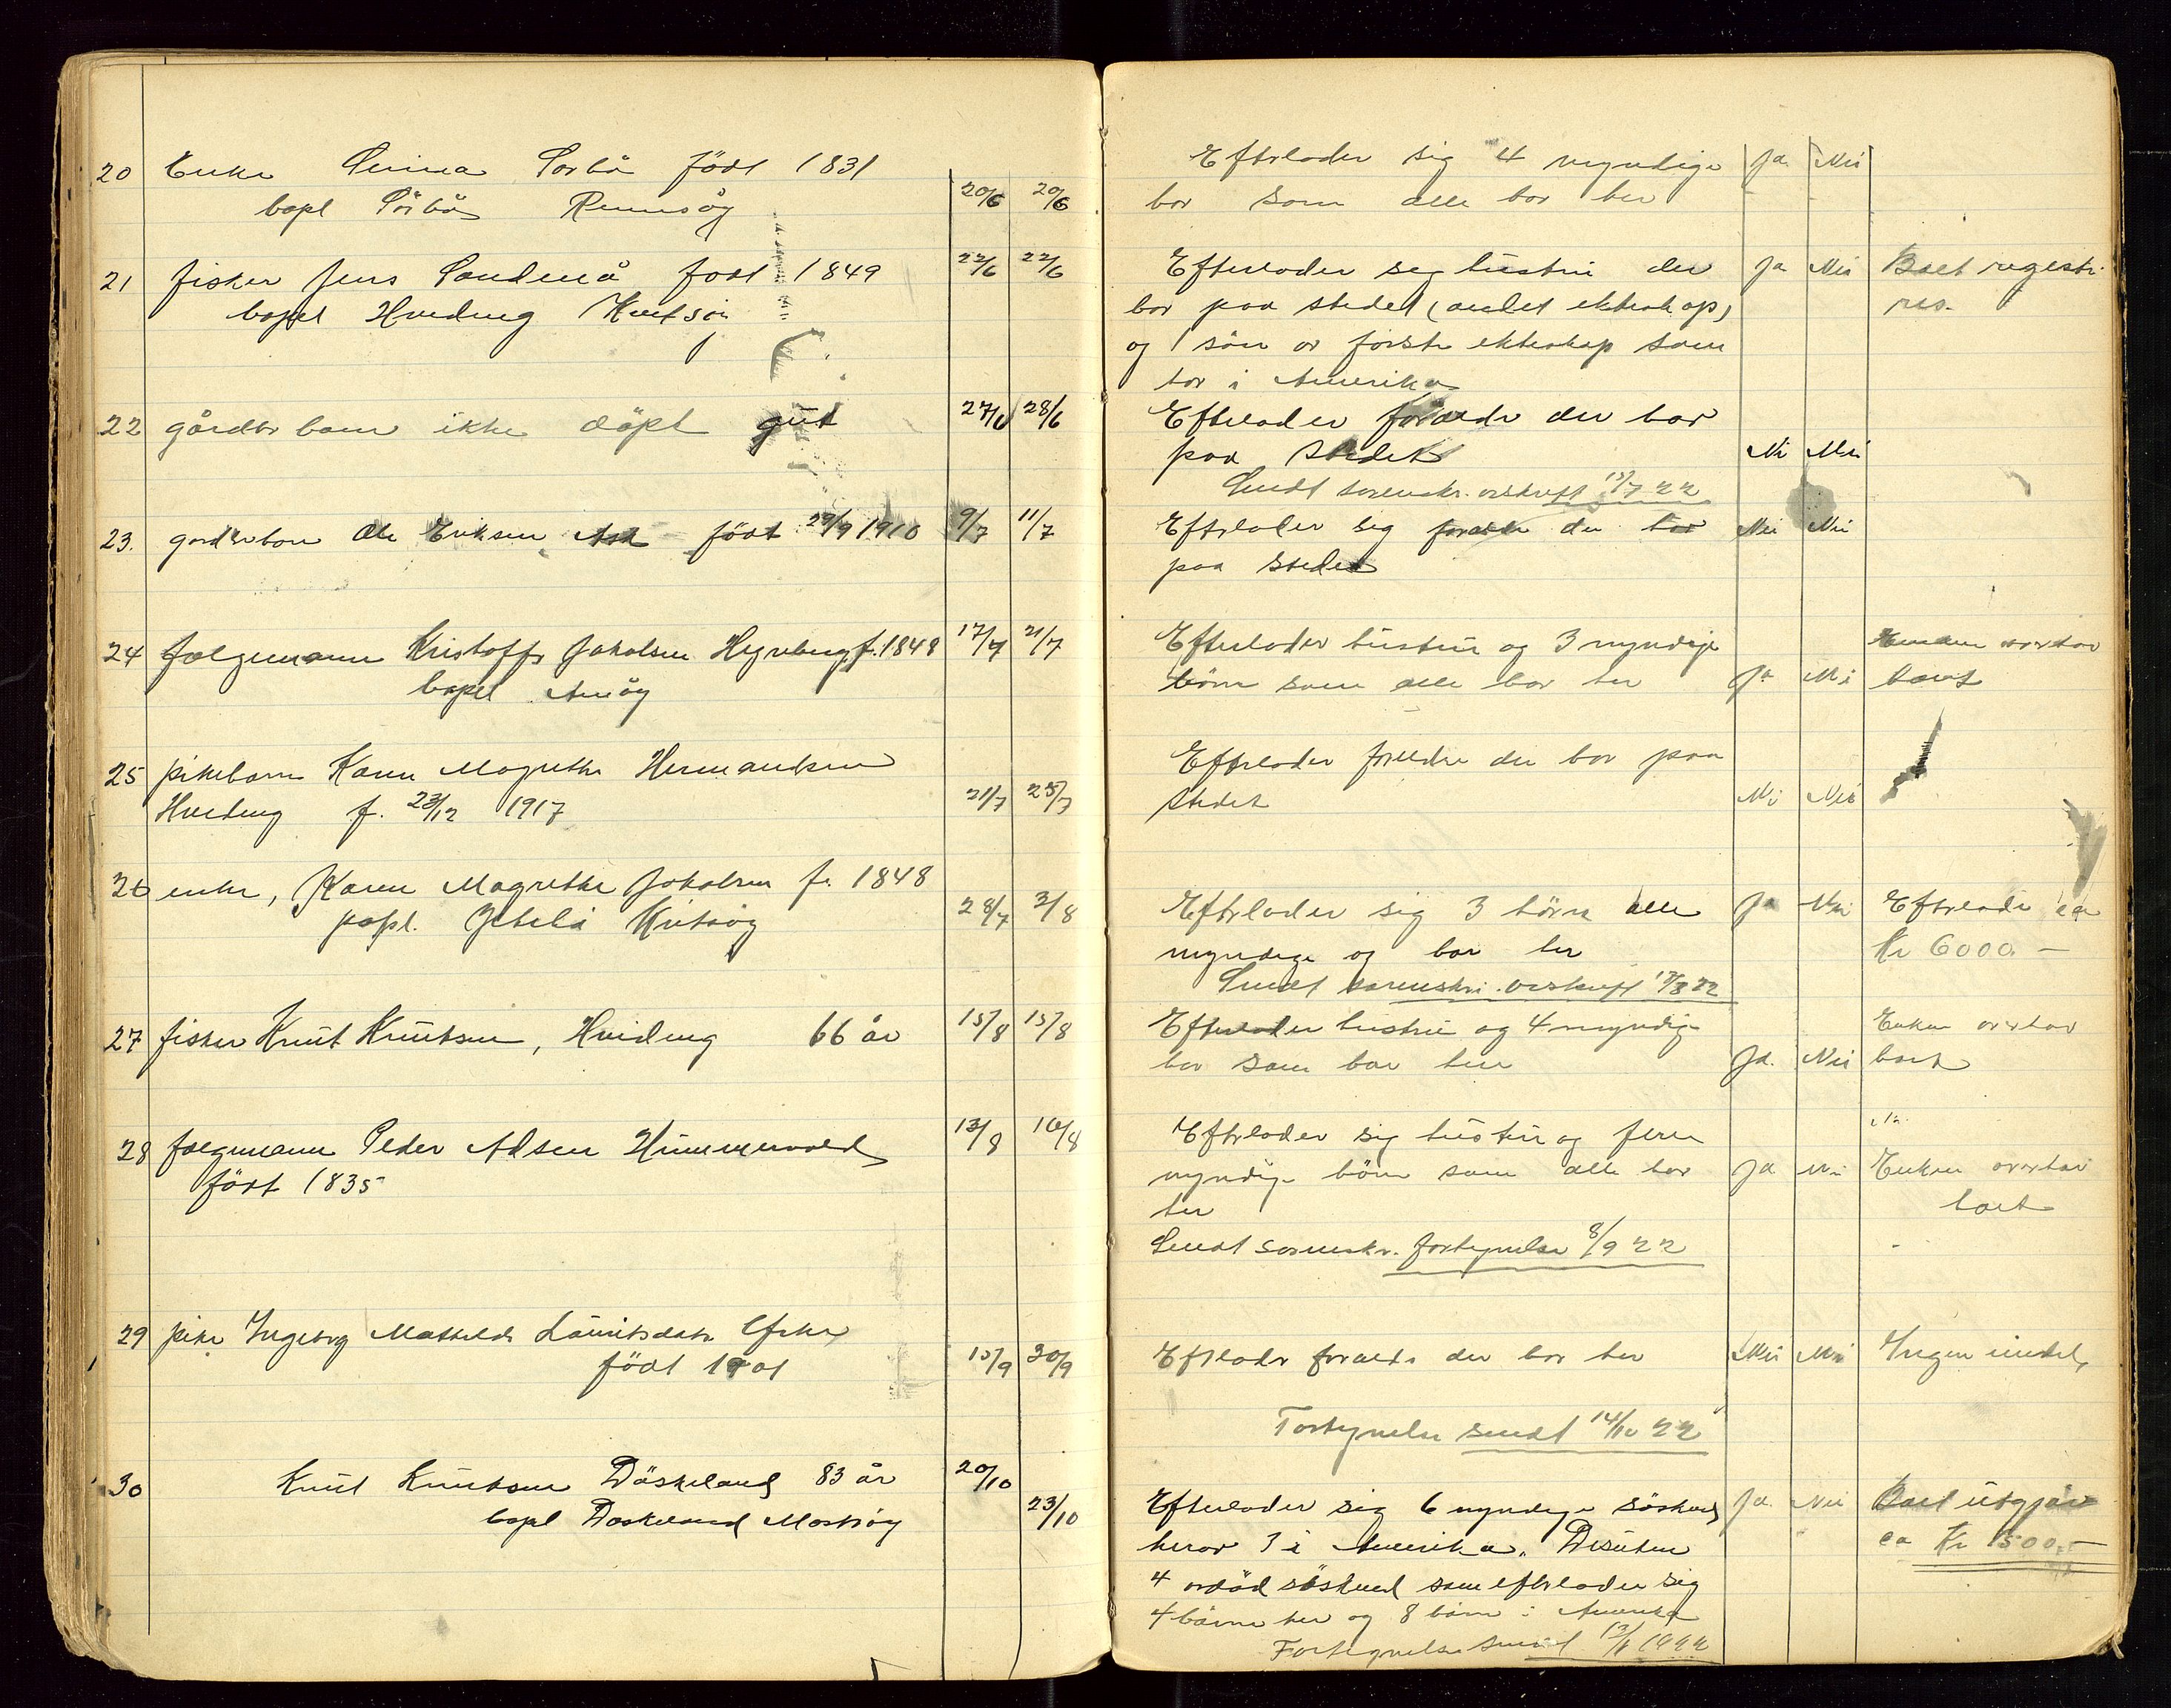 20 Enke Serina Sørbø födt 1831 20/6 20/6
bopl Sörbö Rennesöy
21 fisker Jens Sandenå födt 1849 22/6 22/6
bopel Hviding Kvitsöi
22 gårdbr barn ikke döpt gut 27/6 28/6
23. gardbrbarn Ole Eriksen Ask födt 29/9 1910 9/7 11/7
24 folgemann Kristoffr Jakobsen Hegreberg, f. 1848 17/7 21/7
bopel Amöy
25 pikebarn Karen Magrethe Hermandsen
Hviding f. 23/12 1917 21/7 25/7
26 enke, Karen Magrethe Jakobsen f. 1848
popl. Ydstebö Kvitsöy 28/7 3/8
27 fisker Knut Knutsen, Hviding 66 år 15/8 15/8
28 folgemann Peder Adsen Hummervold 13/8 16/8
födt 1835
29 pike Ingeborg Mathilde Lauritsdatr
födt 1901 15/9 30/9
30 Knut Knutsen Döskeland 83 år 20/10
bopl Doskeland Moströy 23/10
Efterlader sig 4 myndige Ja Nei
bar som alle bor her
Efterlader sig hustru der Ja Nei Boet registre
bor paa stedet (andet ekteskap) res.
og 1 sön av förste ekteskap som
bor i Amerika
Efterlader forældre der bor
paa stedet Nei Nei
Sendt sorenskr. avskrift 15/7 22
Efterlader sig forældre der bor Nei Nei
paa stedet
Efterlader hustru og 3 myndige Enken overtar
börn som alle bor her Ja Nei boet
Efterlader foreldre der bor paa
stedet Nei Nei
Efterlader sig 3 börn alle Ja Nei Efterlader ca
myndige og bor her Kr 6000 —
Sendt sorenskri. avskrift 13/8 22
Efterlader hustru og 4 myndige Enken overtar
bar som bor her Ja. Nei boet
Efterlader sig hustru og flere
myndige börn som alle bor Ja Nei Enken overtar
her boet
Sendt sorenskr. fortegnelse 8/9 22
Efterlader forældre der bor her Nei Nei Ingen midel
Fortegnelse sendt 14/10 22
Efterlader sig 6 myndige söskend Ja. Nei Boet utgjör
herav 1 i Amerika. Desuten ca Kr 1500,—
4 avdöd söskend som efterlader sig
4 börn her og 8 börn i Amerika
Fortegnelse sendt 13/11 1922